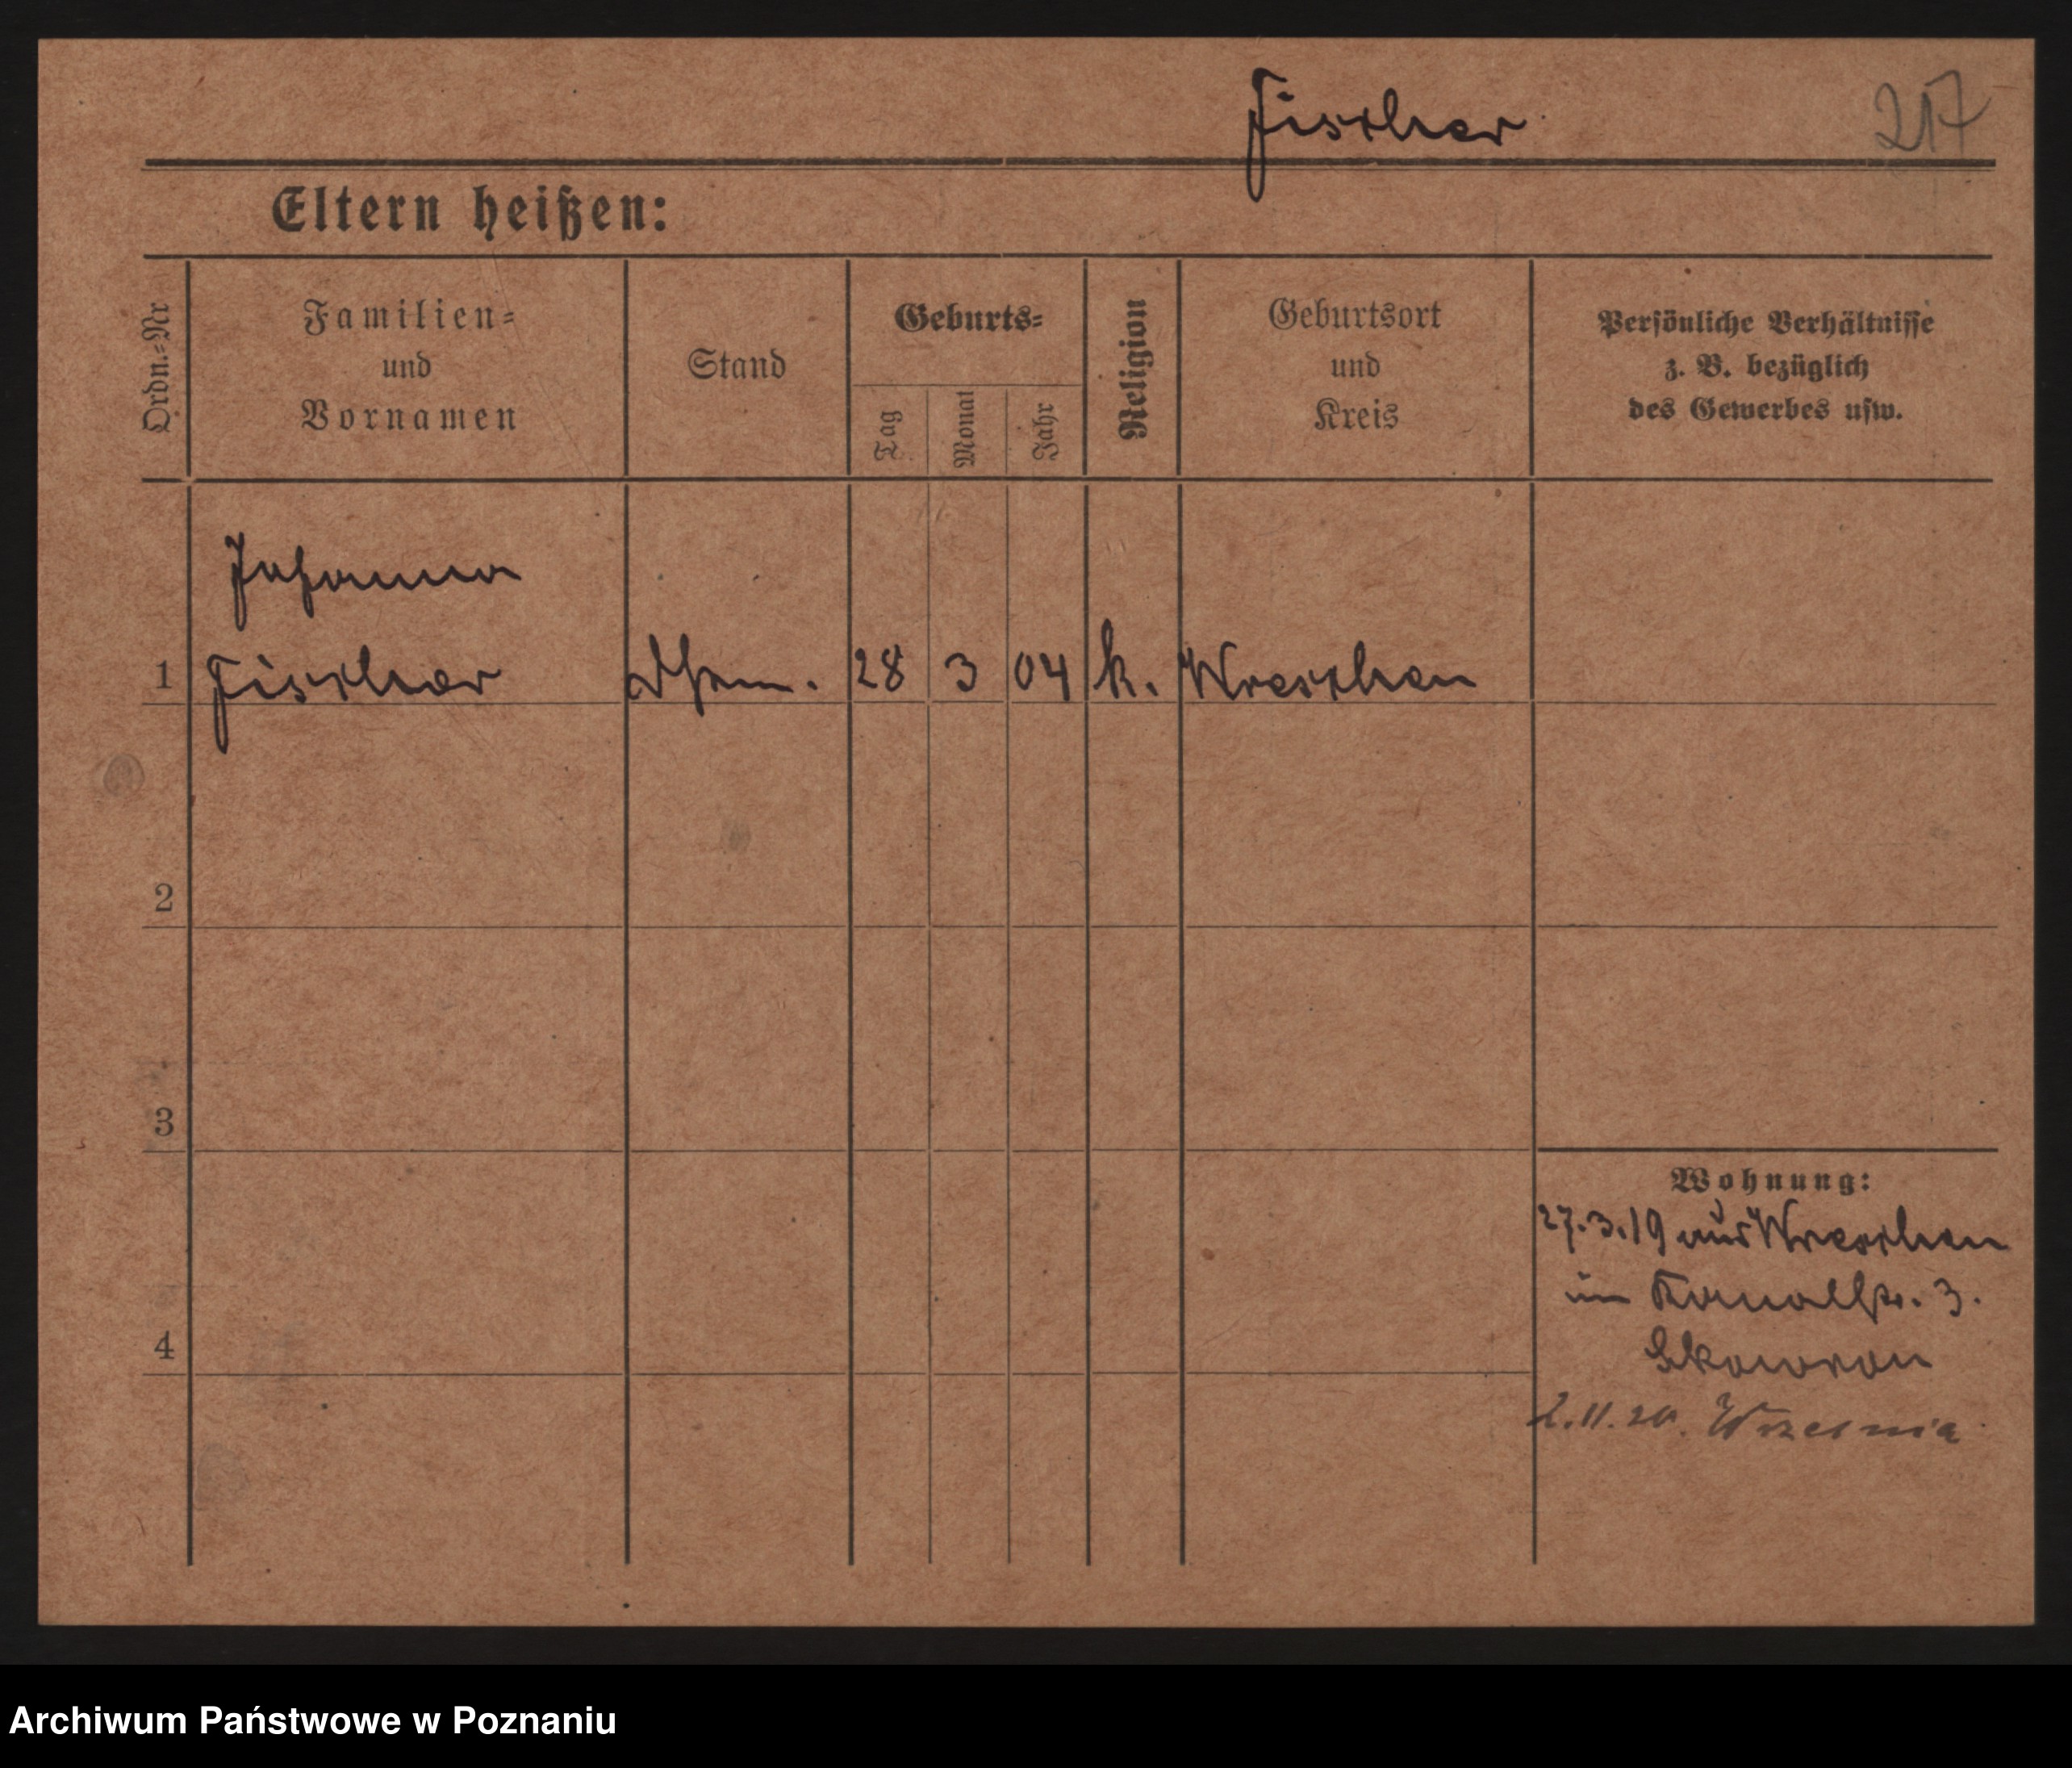 Fischer 217
Eltern heißen:
Ordn.-Nr
Familien-
und
Vornamen
Stand
Geburts-
Tag
Monat
Jahr
Religion
Geburtsort
und
Kreis
Persönliche Verhältnisse
z. B. bezüglich
des Gewerbes usw.
Johanna
1 Fischer 28 3 04 k. Wreschen
2
3
4
Wohnung:
27.3.19 aus Wreschen
in Kanalstr. 3.
Skowron
2.11.20. Września
Archiwum Państwowe w Poznaniu